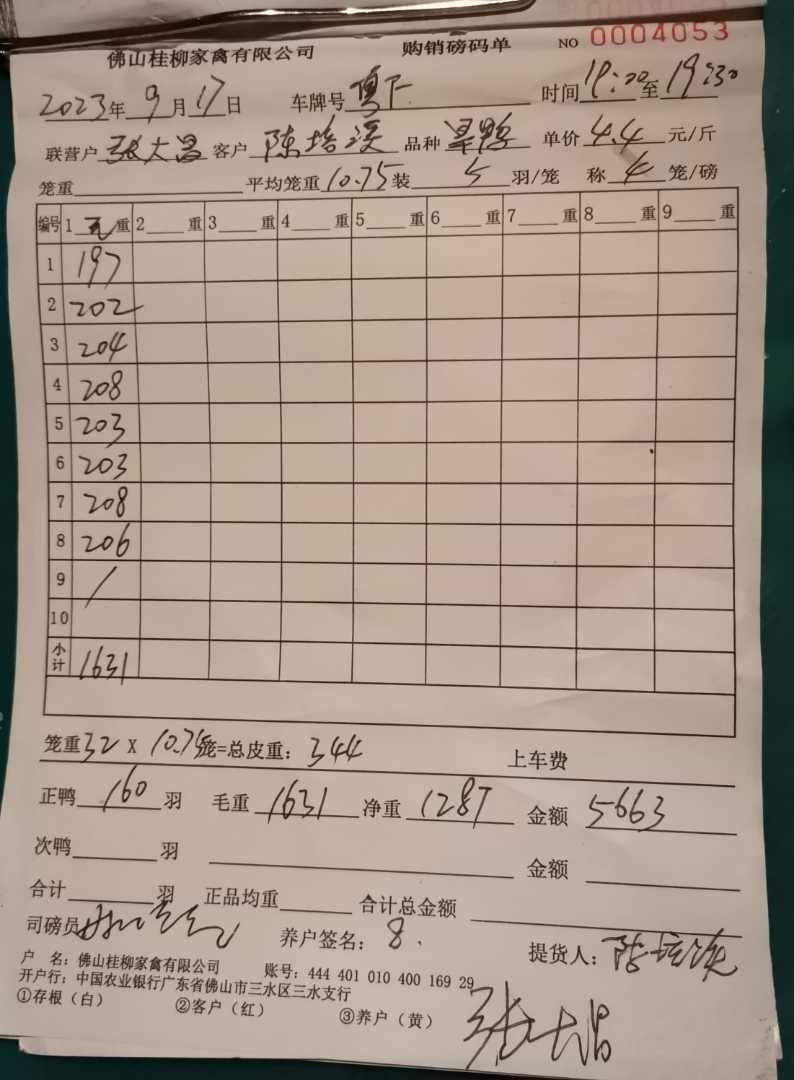 佛山桂柳家禽有限公司 购销磅码单 NO 0004053
2023年9月17日 车牌号 时间19:00至19:30
联营户 张大昌 客户 陈培 品种 鸭 单价4.4元/斤
笼重 平均笼重10.75装 5 羽/笼 称 4 笼/磅
编号 1 毛 重 2 重 3 重 4 重 5 重 6 重 7 重 8 重 9 重
1 197
2 202
3 204
4 208
5 203
6 203
7 208
8 206
9 /
10
小计 1631
笼重32 X 10.75笼=总皮重：344 上车费
正鸭 160 羽 毛重 1631 净重 1287 金额 5663
次鸭 羽 金额
合计 羽 正品均重 合计总金额
司磅员 养户签名：8. 提货人：陈培
户 名：佛山桂柳家禽有限公司 账号：444 401 010 400 169 29
开户行：中国农业银行广东省佛山市三水区三水支行
①存根（白） ②客户（红） ③养户（黄） 张大昌